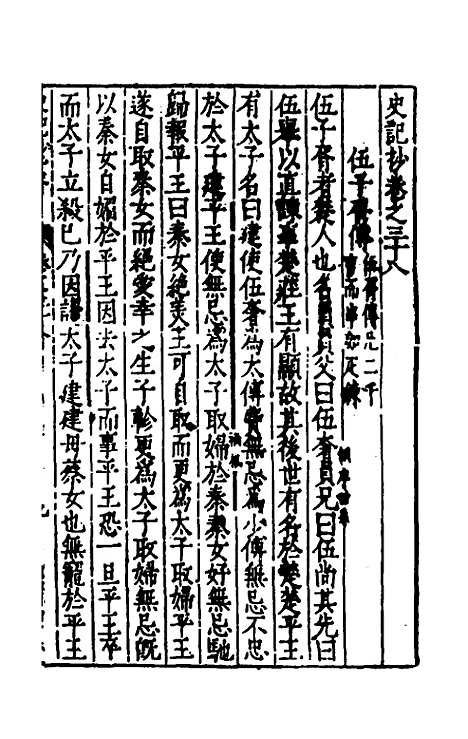 史記抄卷之三十八
伍子胥傳
伍子胥者楚人也名員員父曰伍奢員兄曰伍尚其先曰
伍舉以直諫事楚莊王有顯故其後世有名於楚楚平王
有太子名曰建使伍奢為太傅費無忌為少傅無忌不忠
於太子建平王使無忌為太子取婦於秦秦女好無忌馳
歸報平王曰秦女絕美王可自取而更為太子取婦平王
遂自取秦女而絕愛幸之生子軫更為太子取婦無忌既
以秦女自媚於平王因去太子而事平王恐一旦平王卒
而太子立殺己乃因讒太子建建母蔡女也無寵於平王